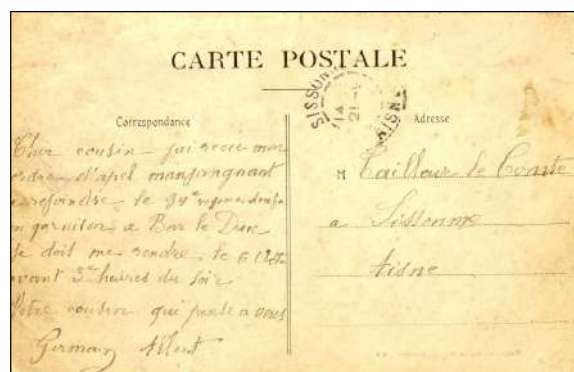 CARTE POSTALE
SISSONNE
AISNE
Correspondance
Adresse
Cher cousin jai recue mon
ordre d'apel manjoingnant
a rejoindre le 94e
en garnison a Bar le Duc
Je doit me rendre le 6
avant 3 heures du soir
Votre cousin qui pense a vous
Germain
M Tailleur le Comte
a Sissonne
Aisne